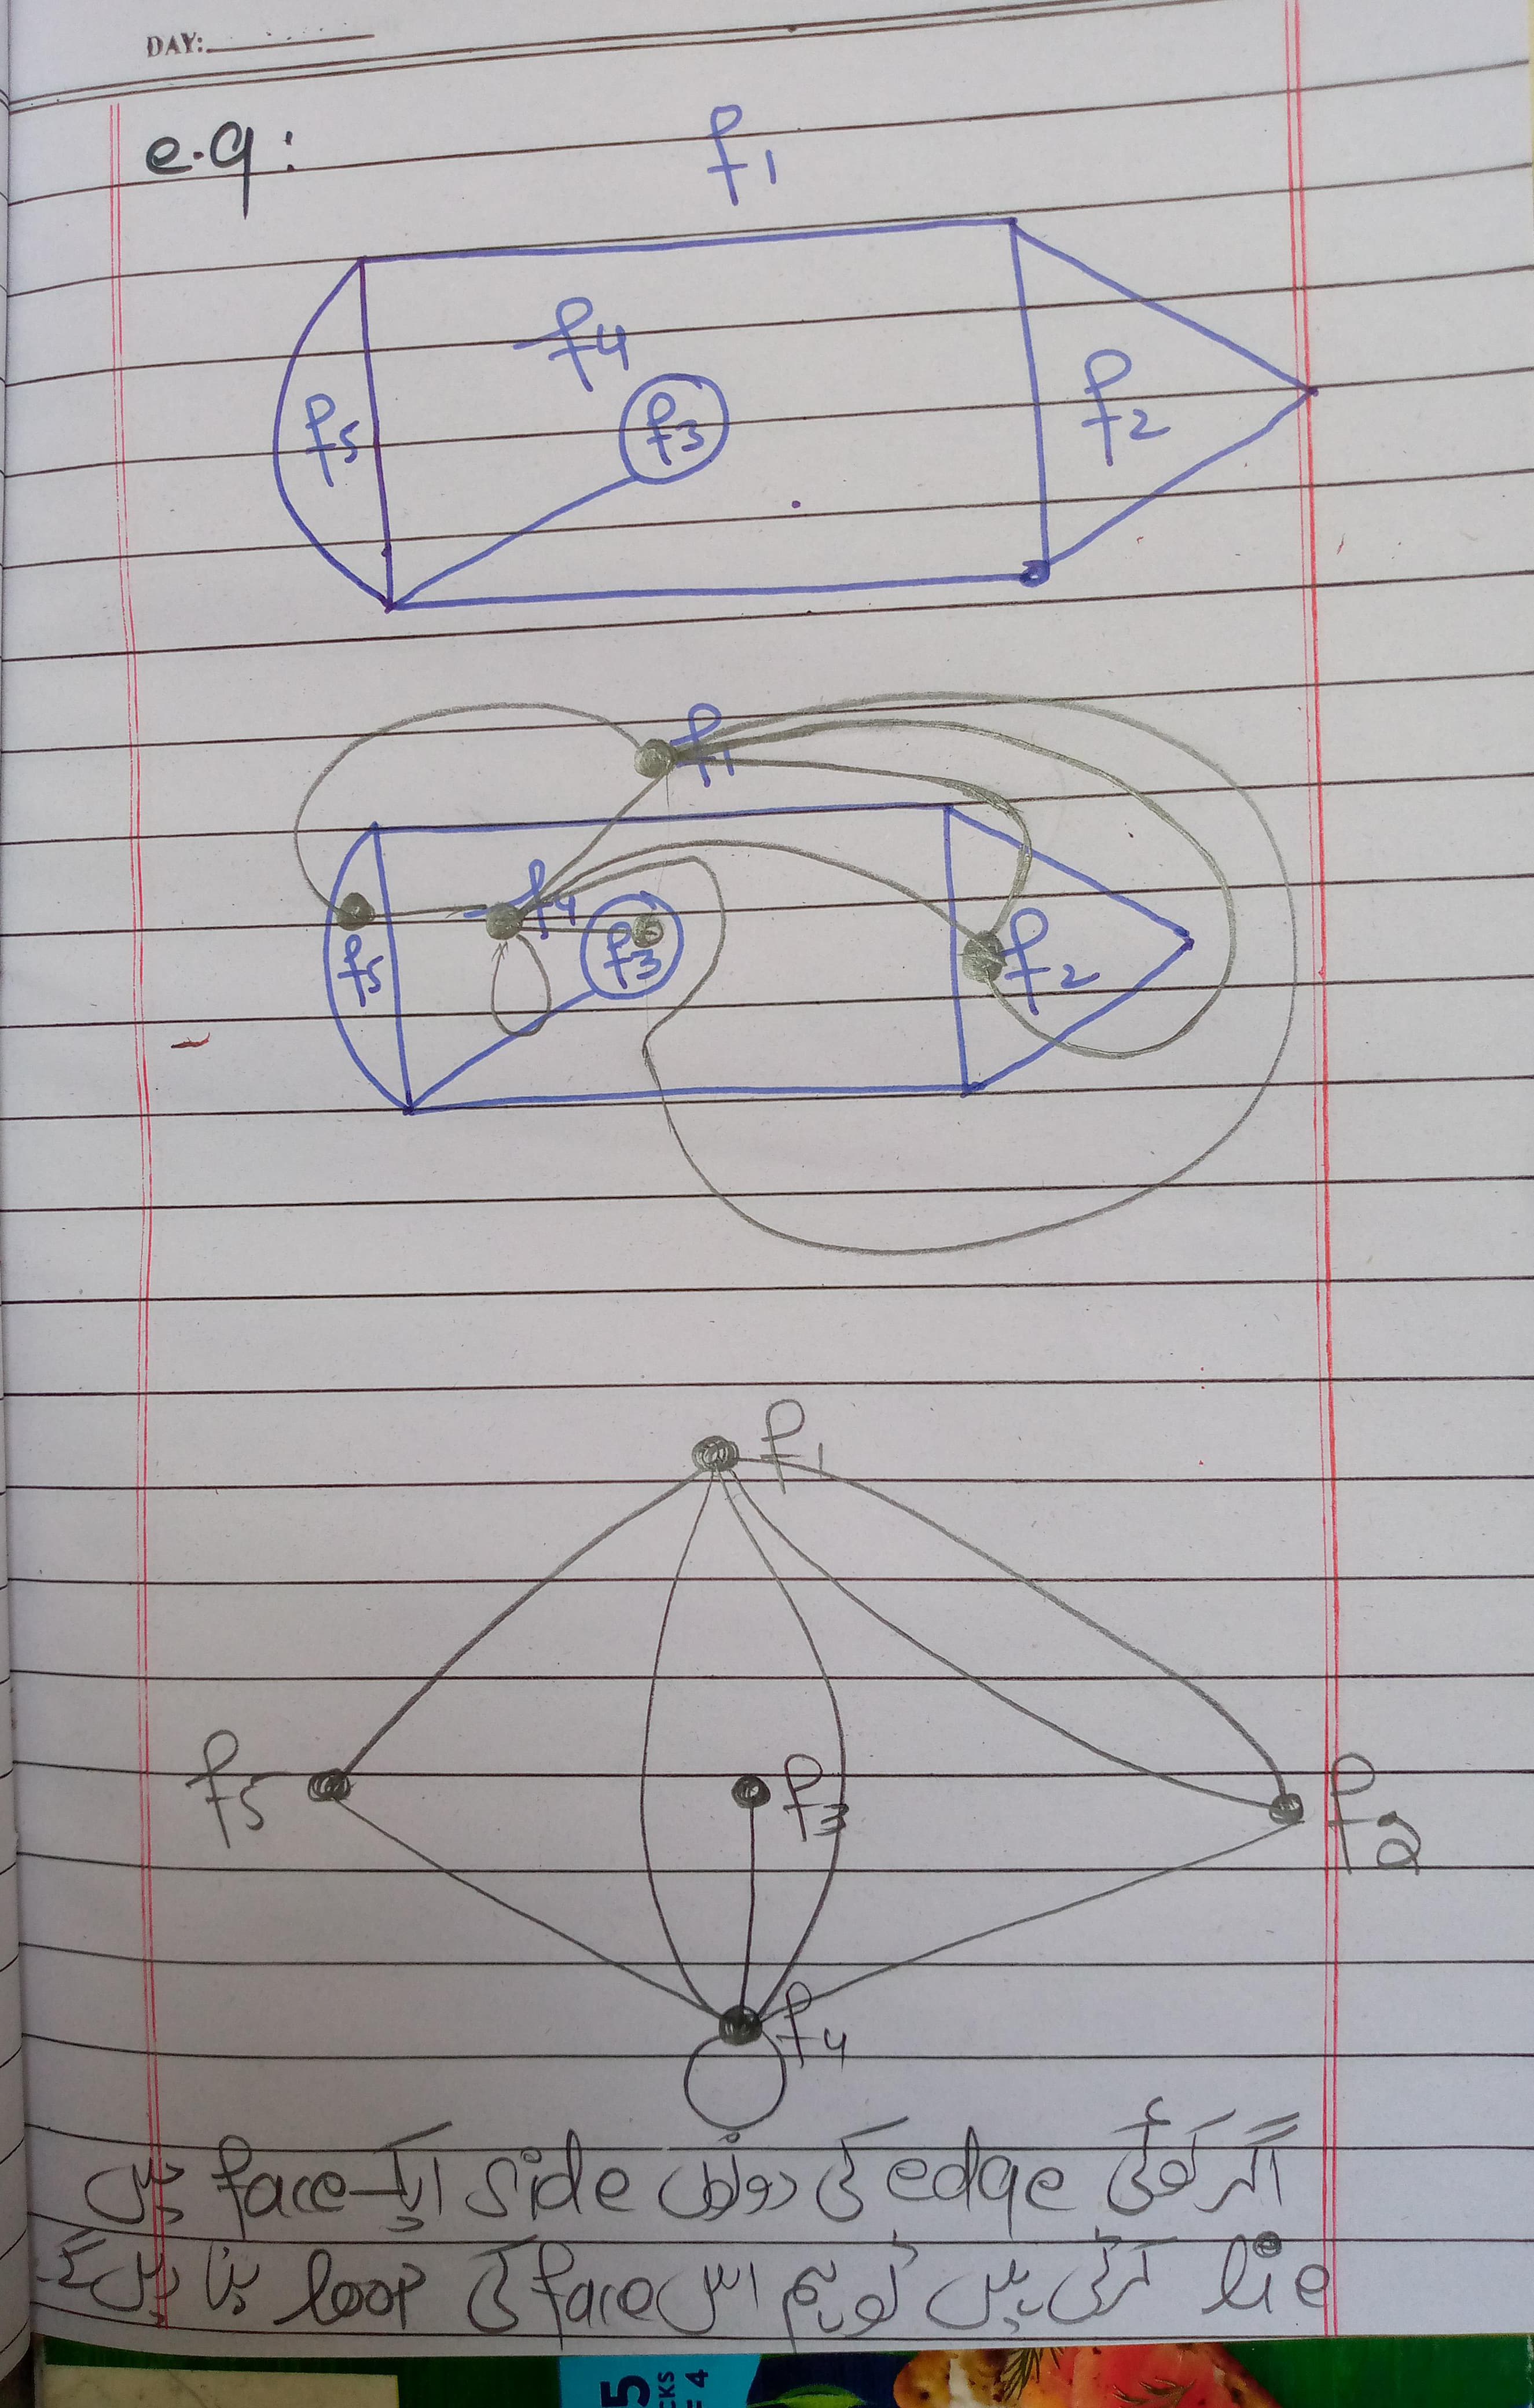 DAY:
e.g:
f1
f4
f5
f3
f2
f1
f4
f5
f3
f2
f1
f5
f3
f2
f4
اگر کوئی edge کی دونوں side ایک face میں
lie کرتی ہیں تو ہم اس face کی loop بنا دیں گے
5